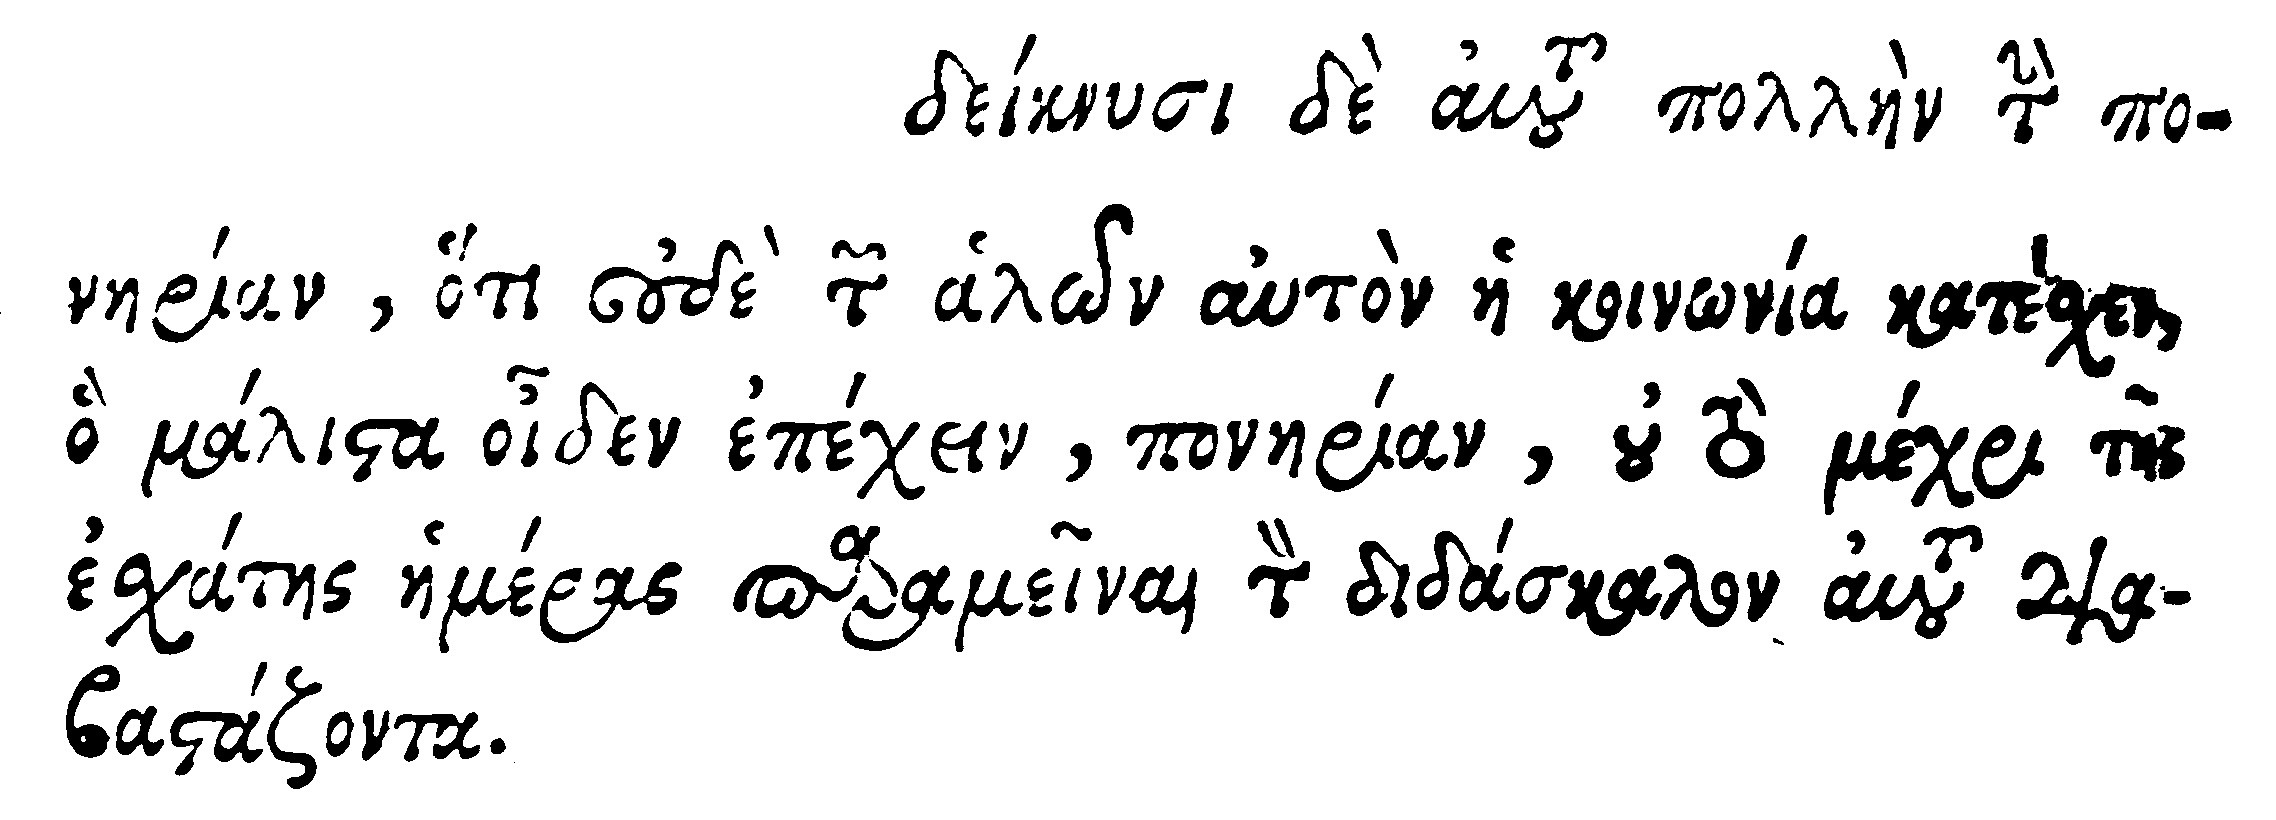 δείκνυσι δὲ ἀυτοῦ πολλὴν τὴν πο-
νηρίαν, ὅτι οὐδὲ τῶν ἁλῶν αὐτὸν ἡ κοινωνία κατέσχεν,
ὃ μάλιστα οἶδεν ἐπέχειν, πονηρίαν, οὐ τὸ μέχρι τῆς
ἐσχάτης ἡμέρας παραμεῖναι τὸν διδάσκαλον ἀυτοῦ δια-
βαστάζοντα.